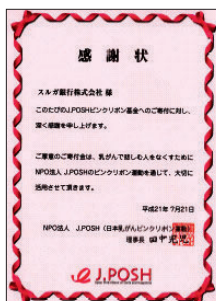 感謝状
スルガ銀行株式会社 様
このたびのJ.POSHピンクリボン基金へのご寄付に対し、
深く感謝を申し上げます。
ご厚意のご寄付金は、乳がんで悲しむ人をなくすために
NPO法人 J.POSHのピンクリボン運動を通じて、大切に
活用させて頂きます。
平成21年7月21日
NPO法人 J.POSH（日本乳がんピンクリボン運動）
理事長 田中完児
J.POSH